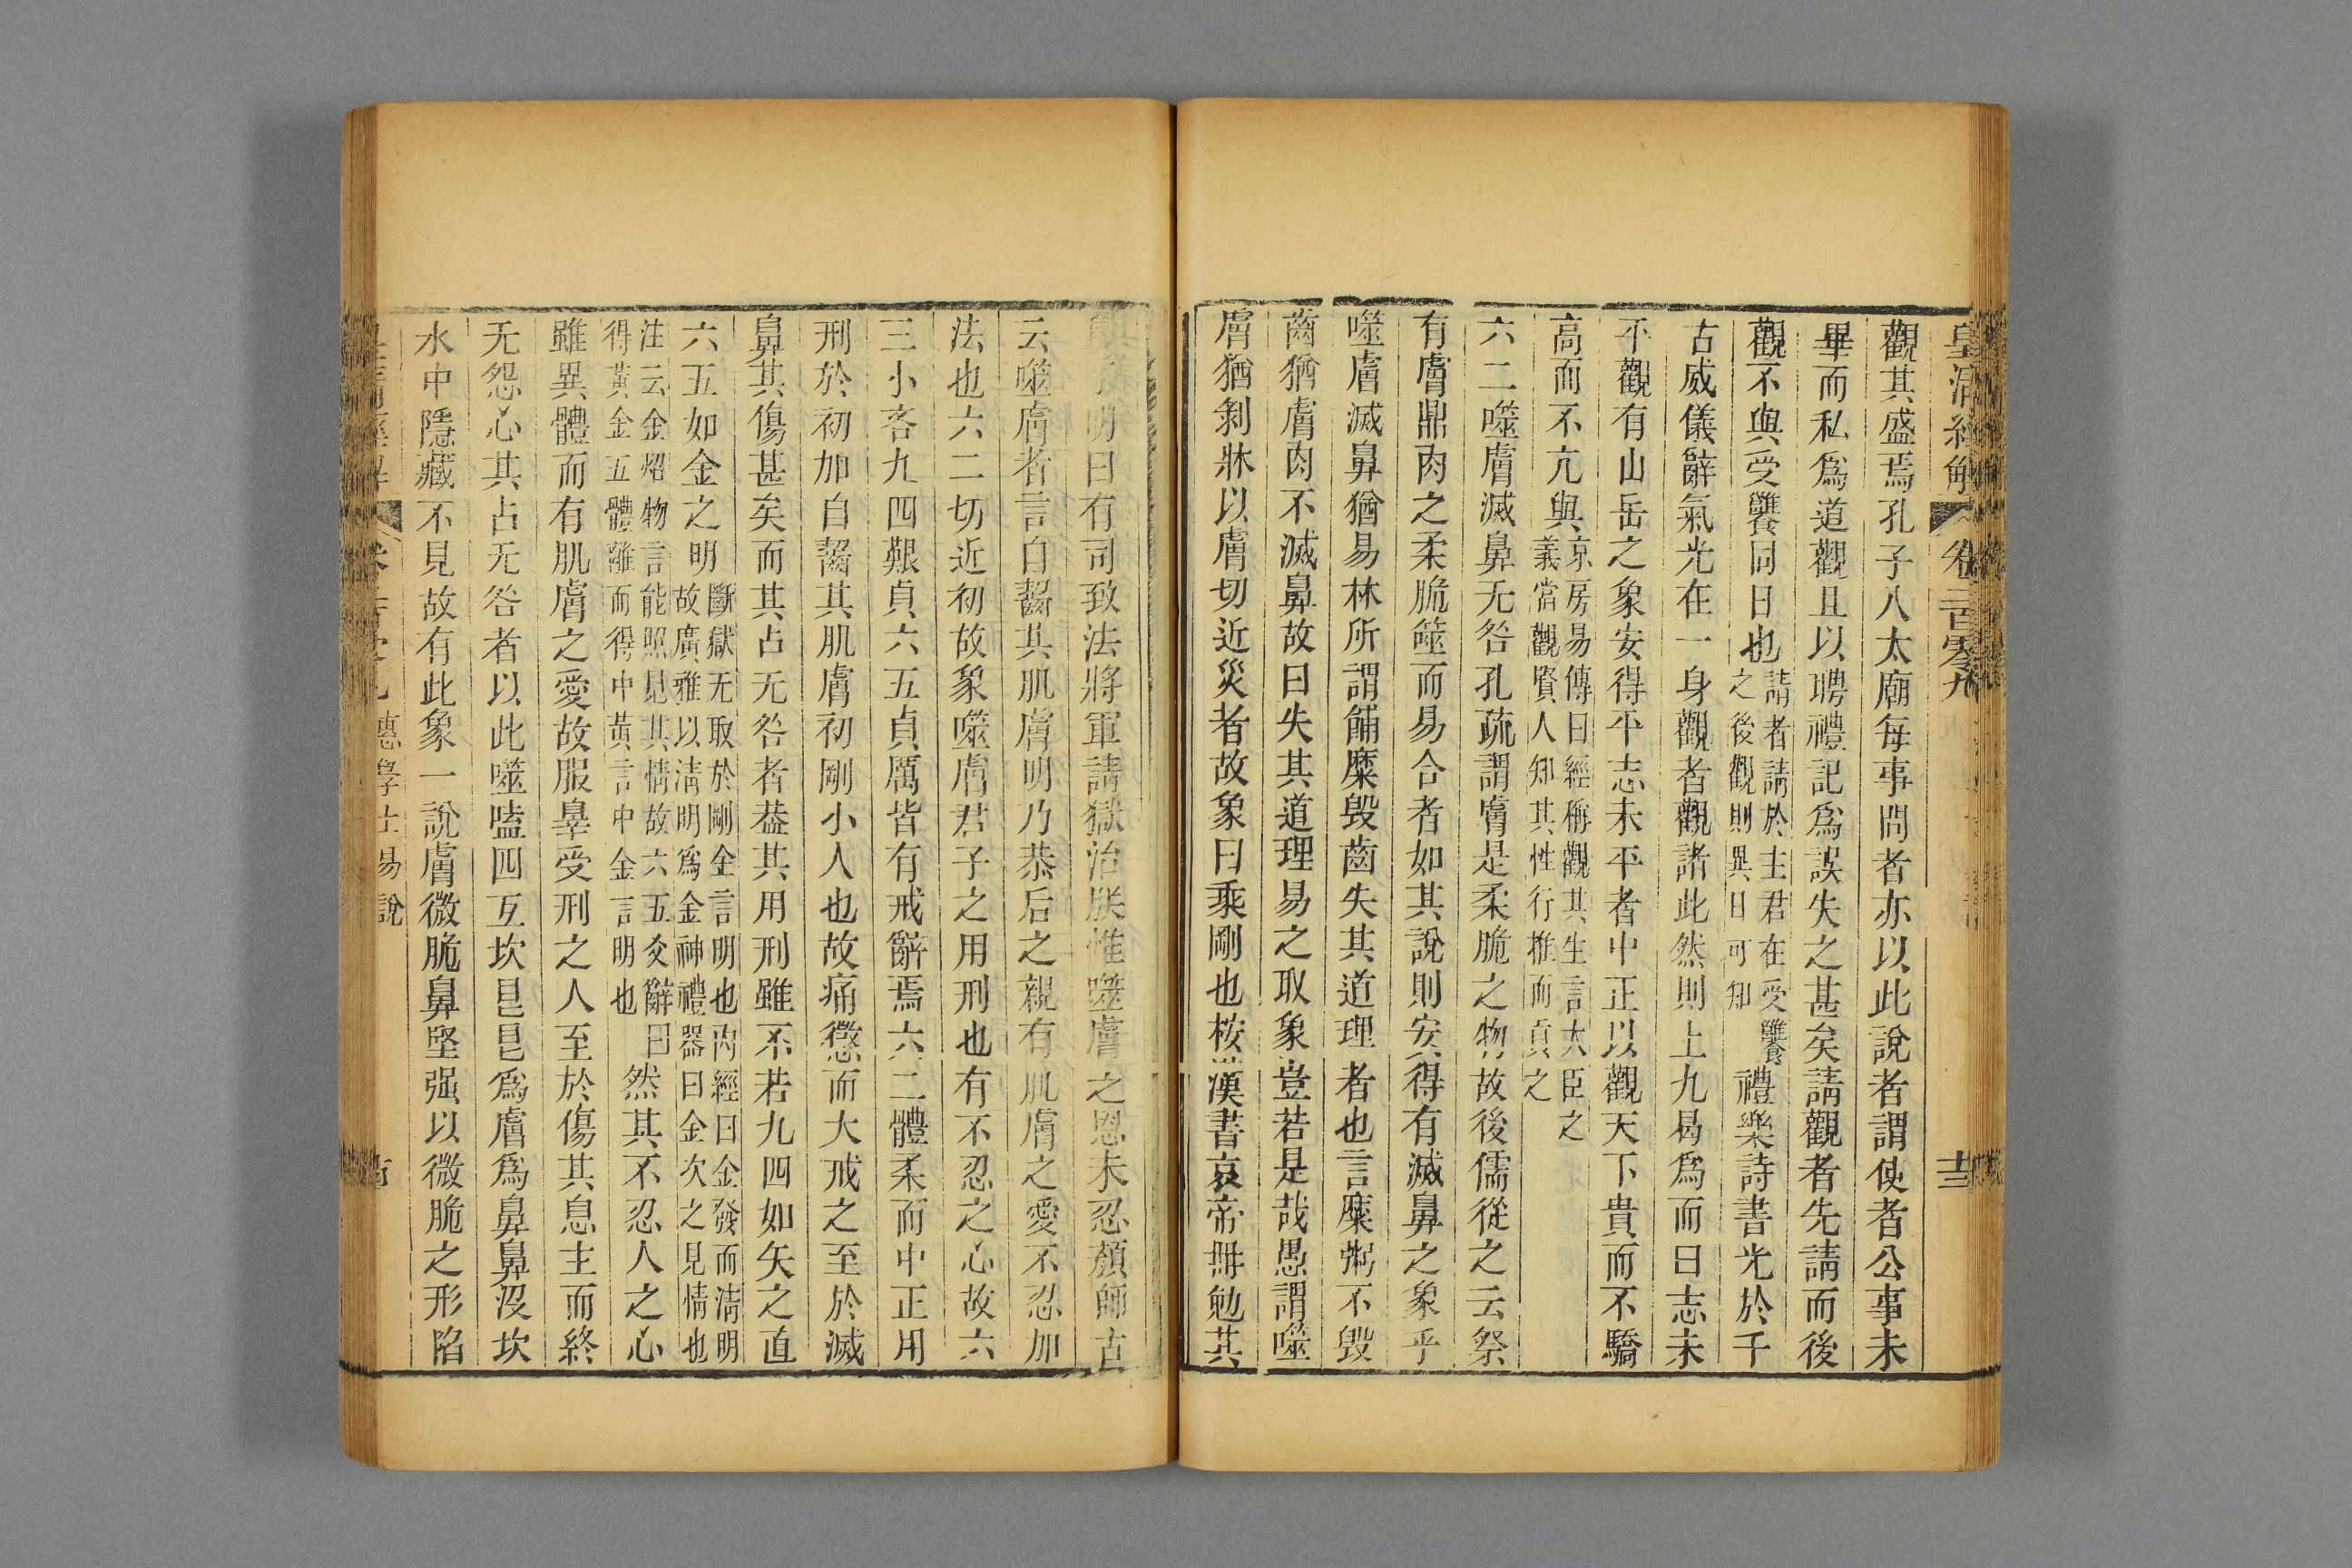 皇清經解 卷二百零九 士三
觀其盛焉孔子入太廟每事問者亦以此說者謂使者公事未
畢而私爲道觀且以聘禮記爲誤失之甚矣請觀者先請而後
觀不與受饔同日也請者請於主君在受饔之後觀則異日可知禮樂詩書光於千
古威儀辭氣光在一身觀者觀諸此然則上九曷爲而曰志未
平觀有山岳之象安得平志未平者中正以觀天下貴而不驕
高而不亢與京房易傳曰經稱觀其生言大臣之義當觀賢人知其性行推而貢之
六二噬膚滅鼻无咎孔疏謂膚是柔脆之物故後儒從之云祭
有膚鼎肉之柔脆噬而易合者如其說則安得有滅鼻之象乎
噬膚滅鼻猶易林所謂餔糜毀齒失其道理者也言糜粥不毀
齒猶膚肉不滅鼻故曰失其道理易之取象豈若是哉愚謂噬
膚猶剝牀以膚切近災者故象曰乘剛也桉漢書哀帝冊勉其
明曰有司致法將軍請獄治朕惟噬膚之恩未忍顏師古
云噬膚者言自齧其肌膚明乃恭后之親有肌膚之愛不忍加
法也六二切近初故象噬膚君子之用刑也有不忍之心故六
三小吝九四艱貞六五貞厲皆有戒辭焉六二體柔而中正用
刑於初加自齧其肌膚初剛小人也故痛懲而大戒之至於滅
鼻其傷甚矣而其占无咎者葢其用刑雖不若九四如矢之直
六五如金之明斷獄无取於剛金言明也內經曰金發而清明故廣雅以清明爲金神禮器曰金次之見情也
注云金炤物言能照見其情故六五爻辭曰得黃金五體離而得中黃言中金言明也然其不忍人之心
雖異體而有肌膚之愛故服辠受刑之人至於傷其息主而終
无怨心其占无咎者以此噬嗑四互坎艮艮爲膚爲鼻鼻沒坎
水中隱藏不見故有此象一說膚微脆鼻堅强以微脆之形陷
學士易說